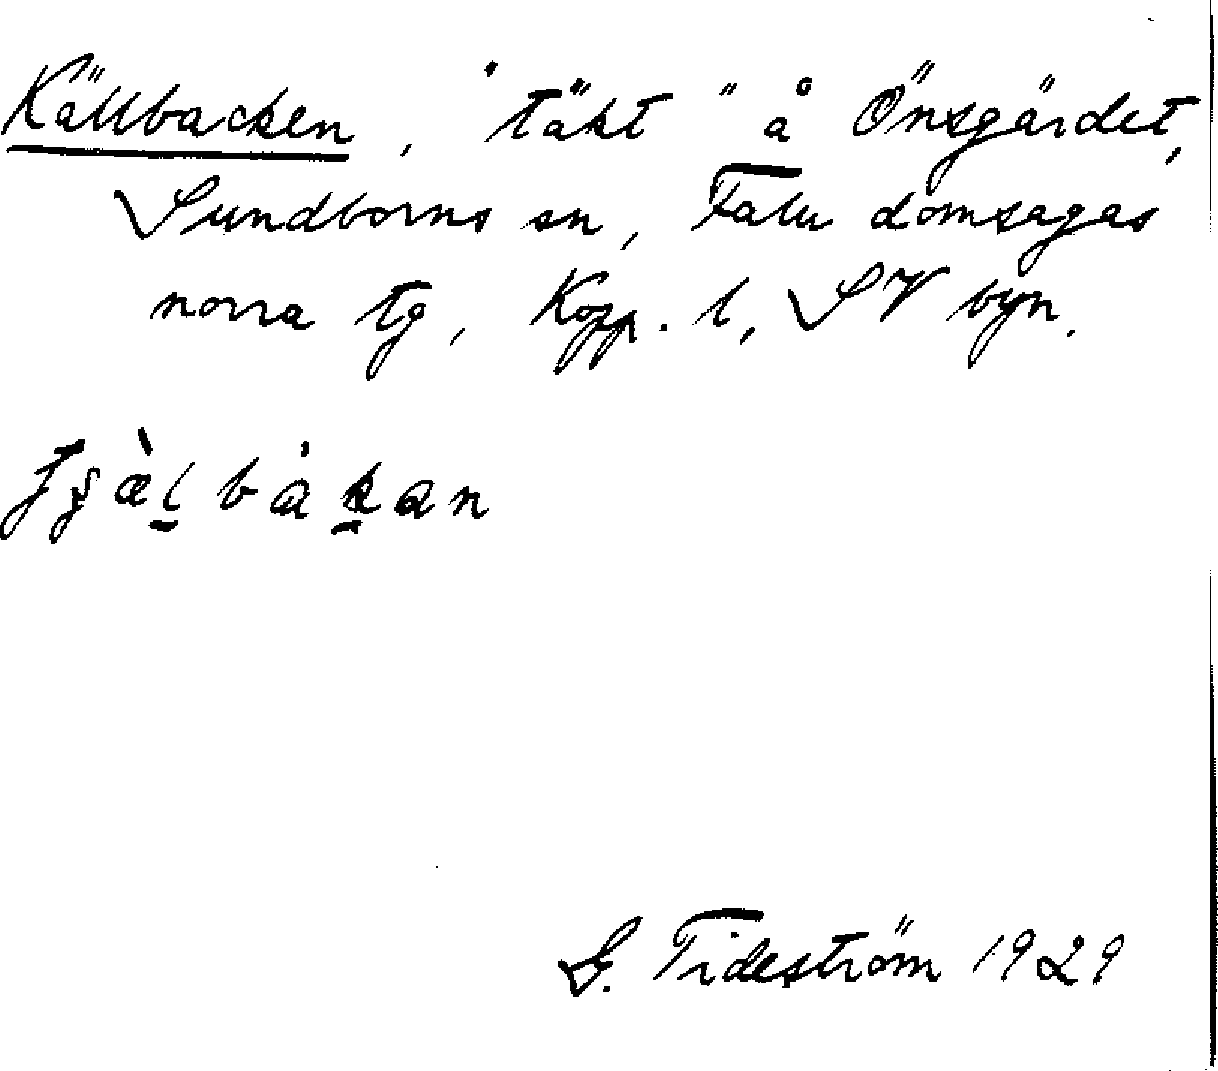 Källbacken, "täkt" å Önsgärdet,
Sundborns sn, Falu domsagas
norra tg, Kopp. l, SV byn.
G. Tideström 1929